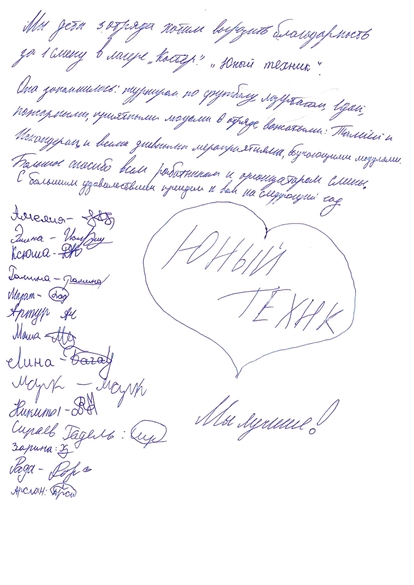 Мы дети 3 отряда хотим выразить благодарность
за 1 смену в лагере „Костёр" „Юный техник".
Она запомнилась: турниром по футболу, едой,
приятными людьми в отряде вожатыми:
и всеми дневными мероприятиями, обучающими модулями.
Большое спасибо всем работникам и организаторам смены.
С большим удовольствием приедем к вам на следующий год
Эмина -
Ксюша -
Галина - Галина
Марат -
Артур
Маша
Лина -
Марк - Марк
Никита -
Сираев Гадель: Сир
Зарина:
Рада -
Арслан:
ЮНЫЙ
ТЕХНИК
Мы лучшие!